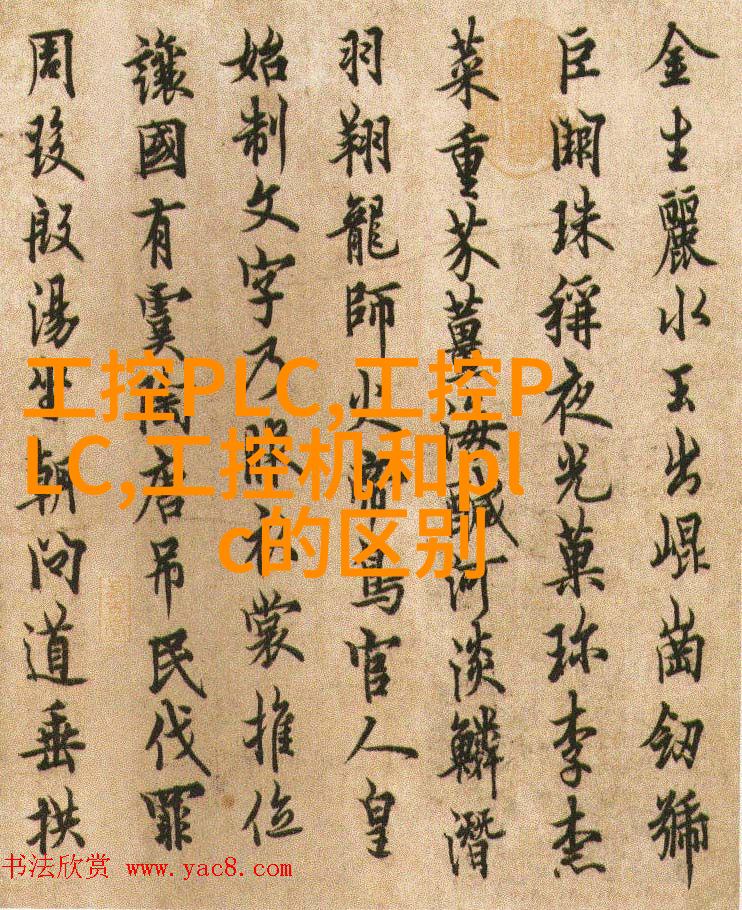 金生麗水玉出崐崗釼號
巨闕珠稱夜光菓珎李柰
菜重芥薑海醎河淡鱗潛
羽翔龍師火帝鳥官人皇
始制文字乃服衣裳推位
讓國有虞陶唐吊民伐罪
周發殷湯坐朝問道垂拱
工控PLC,工控P
LC,工控机和pl
c的区别
书法欣赏 www.yac8.com